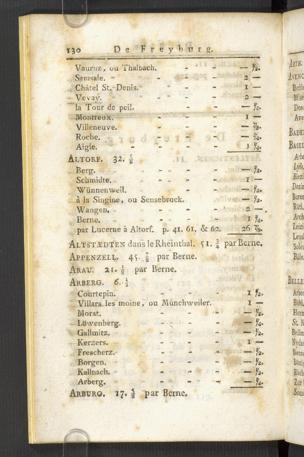 130 De Freyburg.
Vauruz, ou Thalbach. - - — ½.
Semsale. - - - 2 —
Châtel St. Denis. - - 1 —
Vevay. - - - 2 —
la Tour de peil. - - —
Montreux. - - 1 —
Villeneuve. - - —
Roche. - - - —
Aigle. - - - 1
ALTORF. 32.
Berg. - - - — ½.
Schmidte. - - - 1 —
Wünnenweil. - - — ½.
à la Singine, ou Sensebruck. - — ½.
Wangen. - - - 2 —
Berne. - - - 1 ½.
par Lucerne à Altorf. p. 41. 61. & 62. 26
ALTSTÆDTEN dans le Rheinthal. 51. par Berne.
APPENZELL. 45. par Berne.
ARAU. 21. par Berne.
ARBERG. 6.
Courtepin. - - - 1 ½.
Villars les moine, ou Münchweiler. 1 —
Morat. - - - — ½.
Löwenberg. - - - — ½.
Gallmitz. - - - — ½.
Kerzers. - - - 1 —
Frescherz. - - - — ½.
Borgen. - - - — ½.
Kallnach. - - - — ½.
Arberg. - - - — ½.
ARBURG. 17. par Berne.